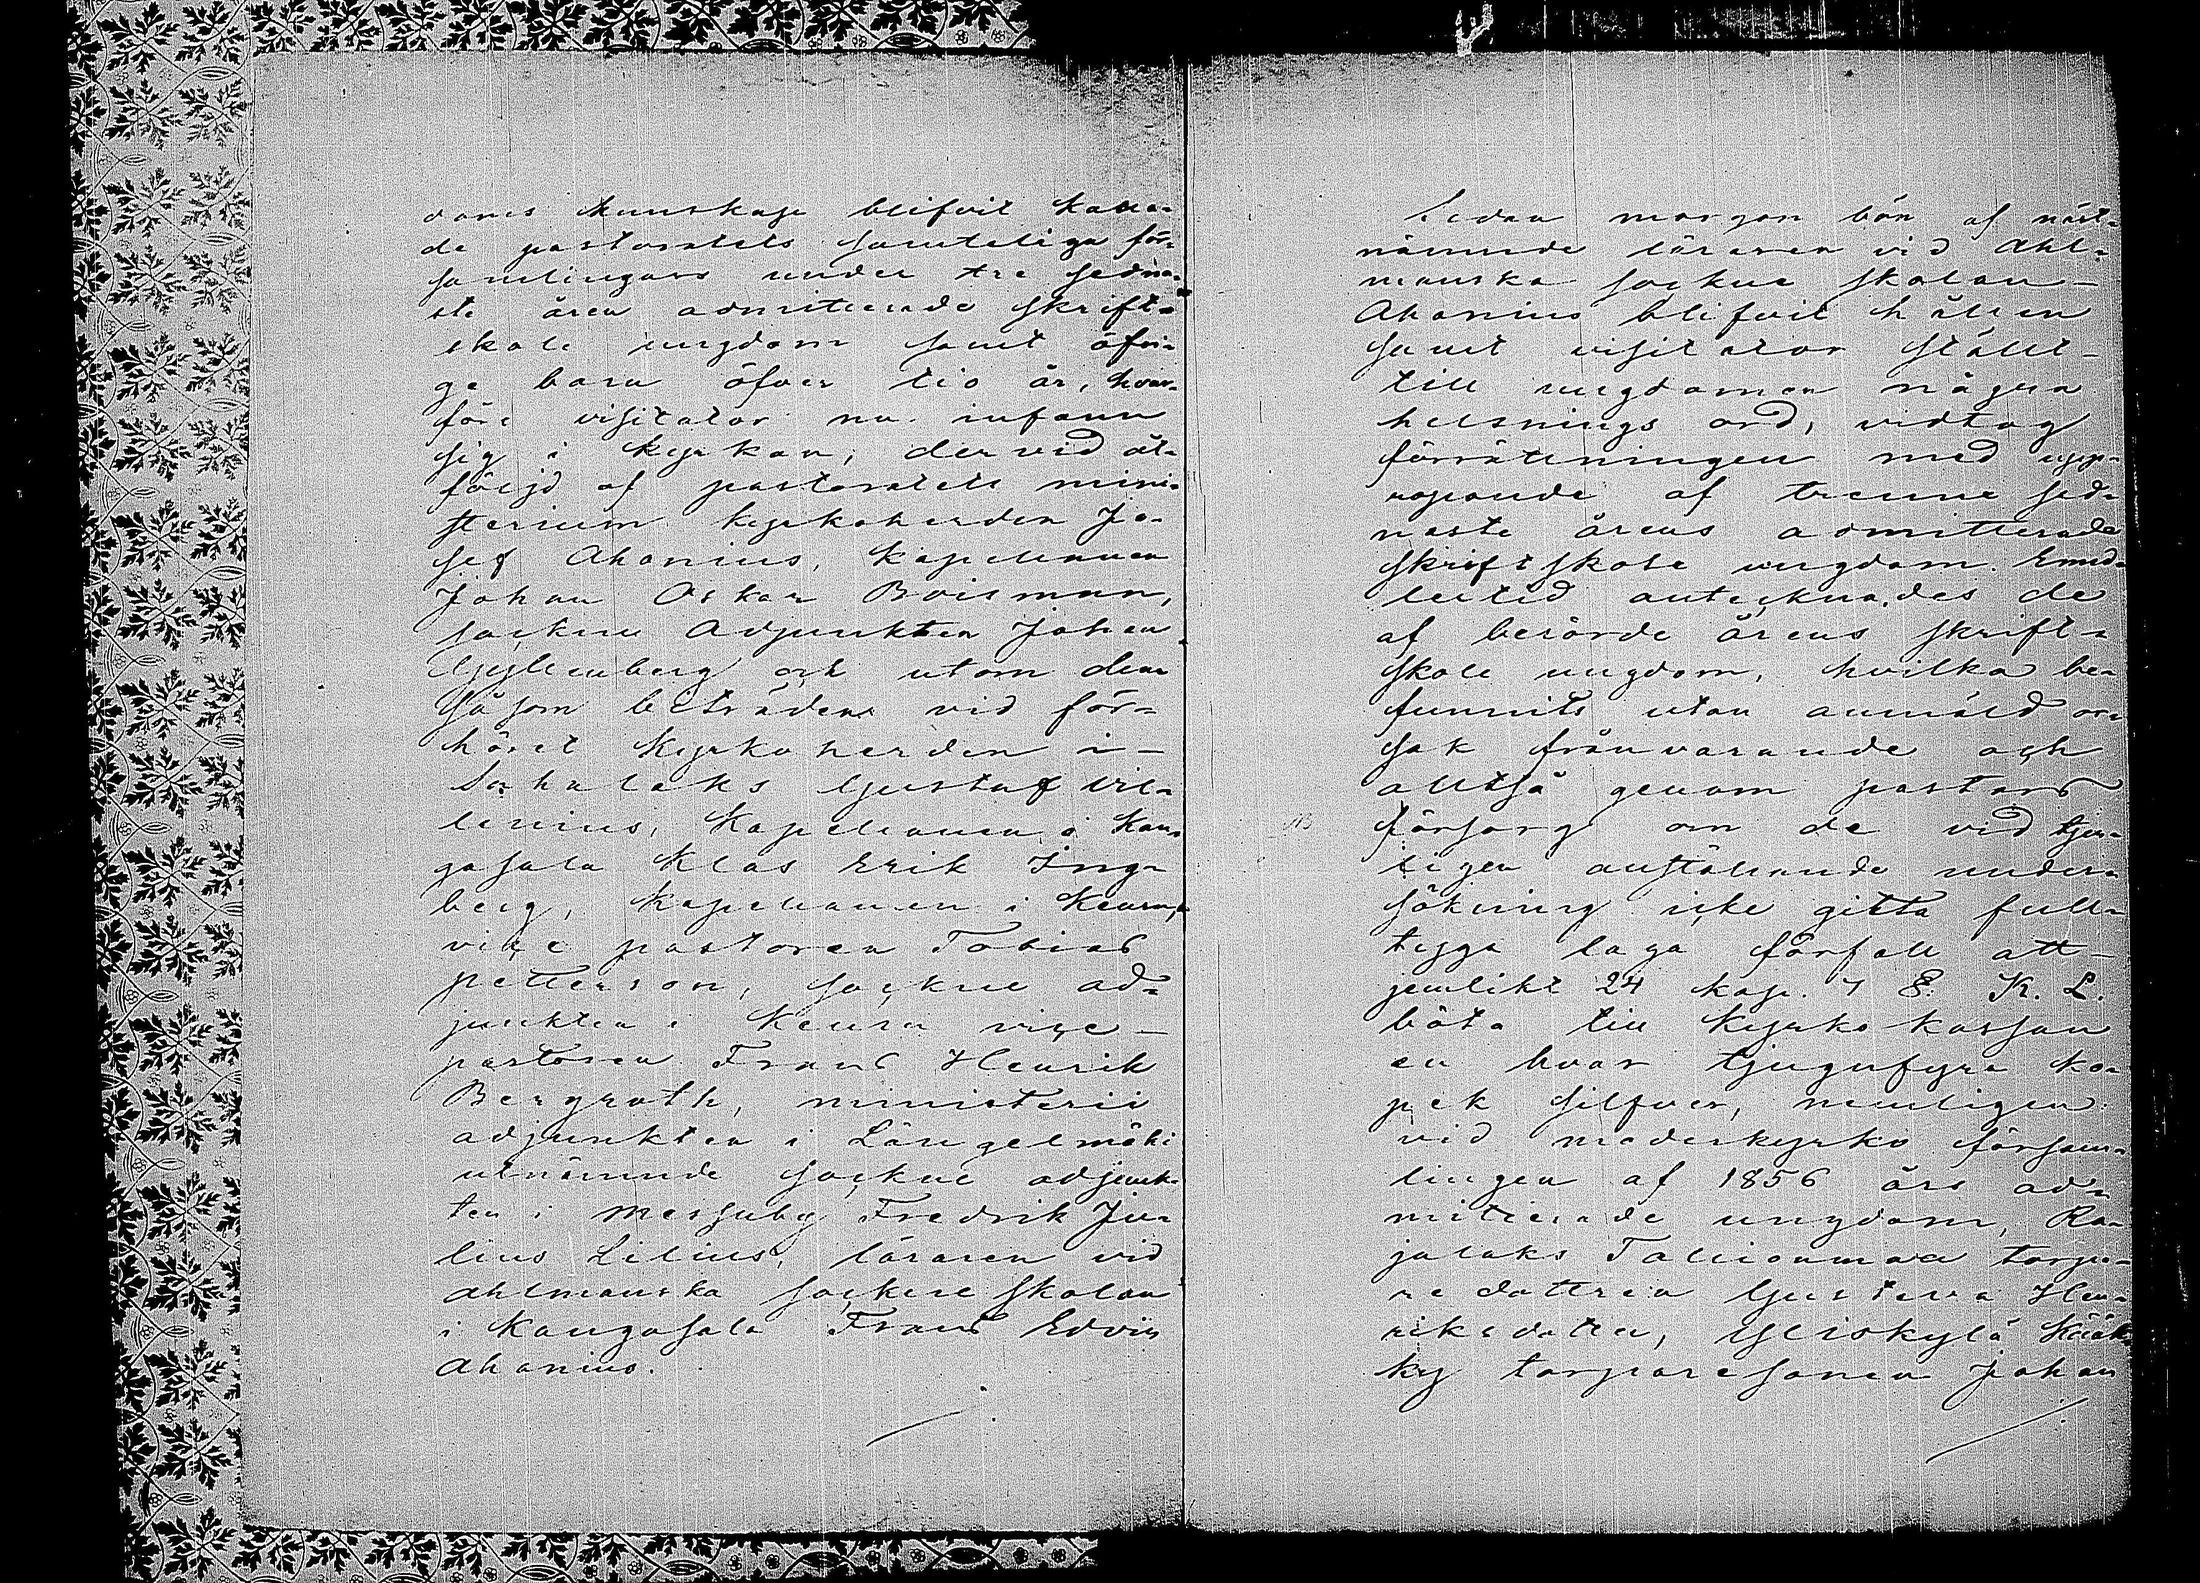 doms kunskap blifvit kalla-
de pastoratets samteliga för-
samlingars under tre sedna-
ste åren admitterade skrift-
skole ungdom samt öfri-
ge barn öfver tio år, hvar-
före visitator nu infann
sig i kyrkan, dervid åt-
följd af pastoratets mini-
sterium kyrkoherden Jo-
sef Ahonius, kapellanen
Johan Oskar Boisman,
sockne Adjunkten Johan
Gyllenberg och utom dem
såsom biträden vid för-
höret kyrkoherden i-
Sahalaks Gustaf Wil-
lenius, Kapellanen i Kan-
gasala Klas Erik Ing-
berg, kapellanen i Keuru,
vice pastoren Tobias
Petterson, sockne ad-
junkten i Keuru vice-
pastoren Frans Henrik
Bergroth, ministerii
adjunkten i Längelmäki
utnämnde sockne adjunk-
ten i Messuby Fredrik Ju-
lius Lilius, läraren vid
Ahlmanska sockne skolan
i Kangasala Frans Edvin
Ahonius.
Sedan morgon bön af näst-
nämnde läraren vid Ahl-
manska sockne skolan-
Ahonius blifvit hållen
samt visitator ställt-
till ungdomen några
helsnings ord, vidtog
förrättningen med upp-
ropande af trenne sed-
naste årens admitterade
skriftskole ungdom. Emed-
lertid antecknades de
af berörde årens skrift-
skole ungdom, hvilka be-
funnits utan anmäld or-
sak frånvarande och
alltså genom pastors
NB försorg om de vid
ligen anställande under-
sökning icke gitta full-
tyga laga förfall att-
jemlikt 24 kap. 7 §. K. L.
böta till kyrko kassan
en hvar tjugufyra ko-
pek silfver, nemligen
vid moderkyrko försam-
lingen af 1856 års ad-
mitterade ungdom, Ra-
jalaks torpa-
re dottren Gustava Hen-
riksdotter, Yliskylä
torparesonen Johan